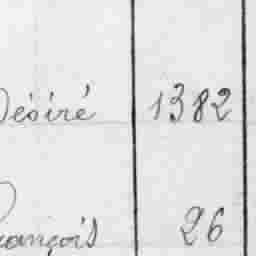 Désiré 1382
François 26